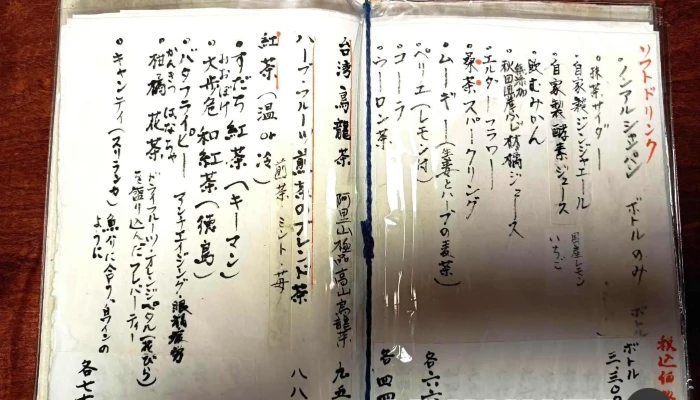 ソフトドリンク
ノンアルシャンパン ボトルのみ ボトル 三.三〇〇
税込価
抹茶サイダー
自家製ジンジャエール 国産レモン
自家製酵素ジュース いちご
飲むみかん
無添加
秋田県産ふじ林檎ジュース
エルダーフラワー
桑茶スパークリング
ムーギー(生姜とハーブの麦茶) 各六六
ペリエ(レモン付)
コーラ
ウーロン茶 各四四
台湾烏龍茶 阿里山極品高山烏龍茶 九五
ハーブ・フルーツ・煎茶のブレンド茶 八八
煎茶 ミント・苺
紅茶(温or冷)
すだち紅茶(キーマン)
おおぼけ
大歩危和紅茶(徳島)
バタフライピー アンチエイジング・眼精疲労
かんきつはなちゃ
柑橘花茶 ドライフルーツ・オレンジペタル(花びら)
を盛り込んだフレーバーティー
キャンディ(スリランカ) 魚介に合う、白ワインの
ように 各七